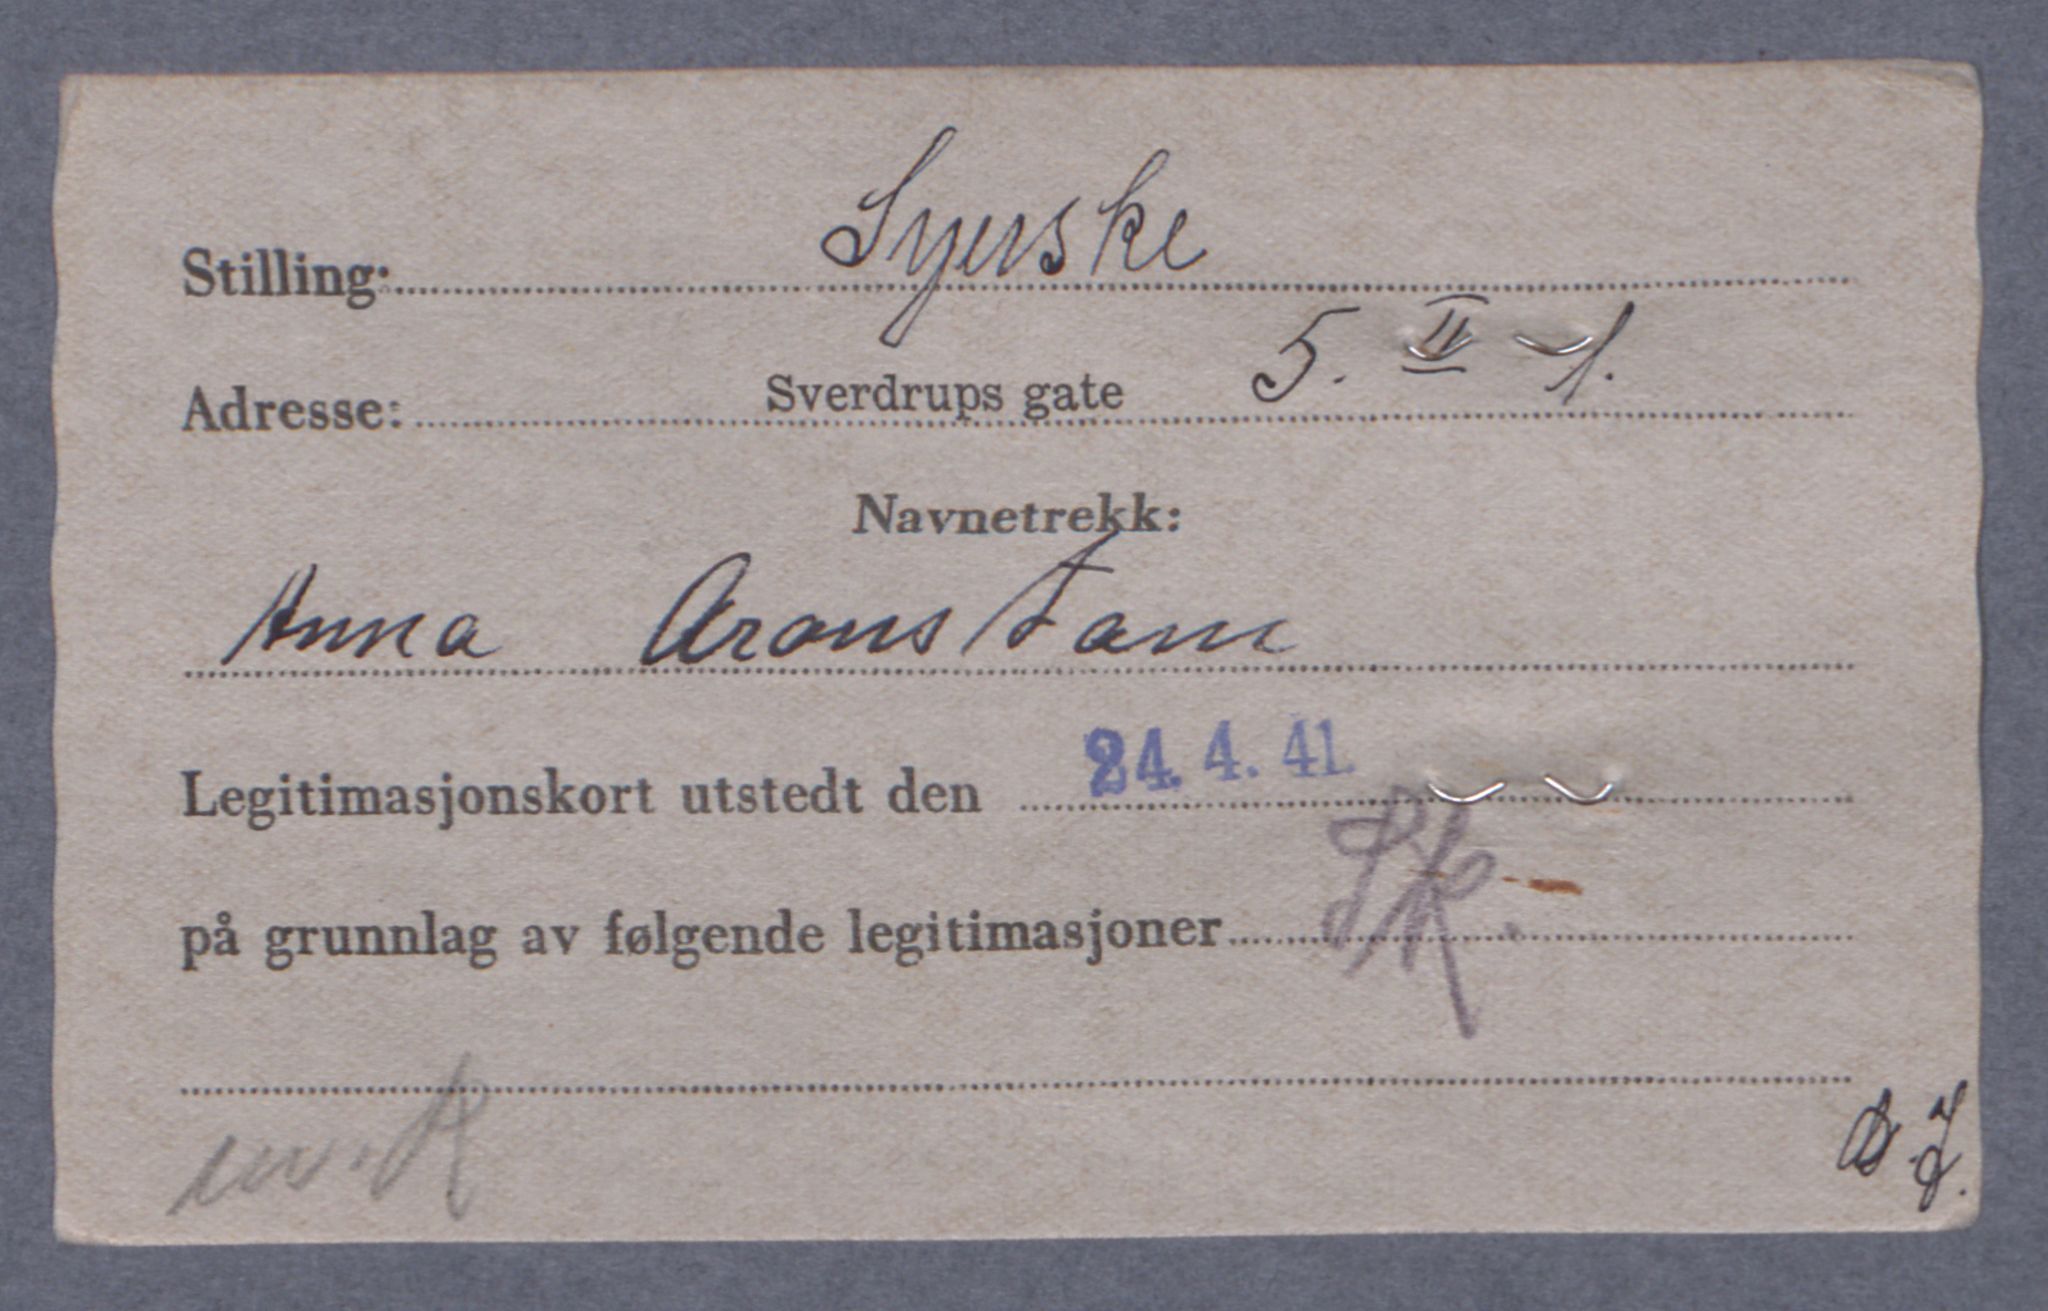 Stilling: Syerske
Adresse: Sverdrups gate 5. II - 1.
Navnetrekk:
Anna Aronstam
Legitimasjonskort utstedt den 24. 4. 41.
på grunnlag av følgende legitimasjoner